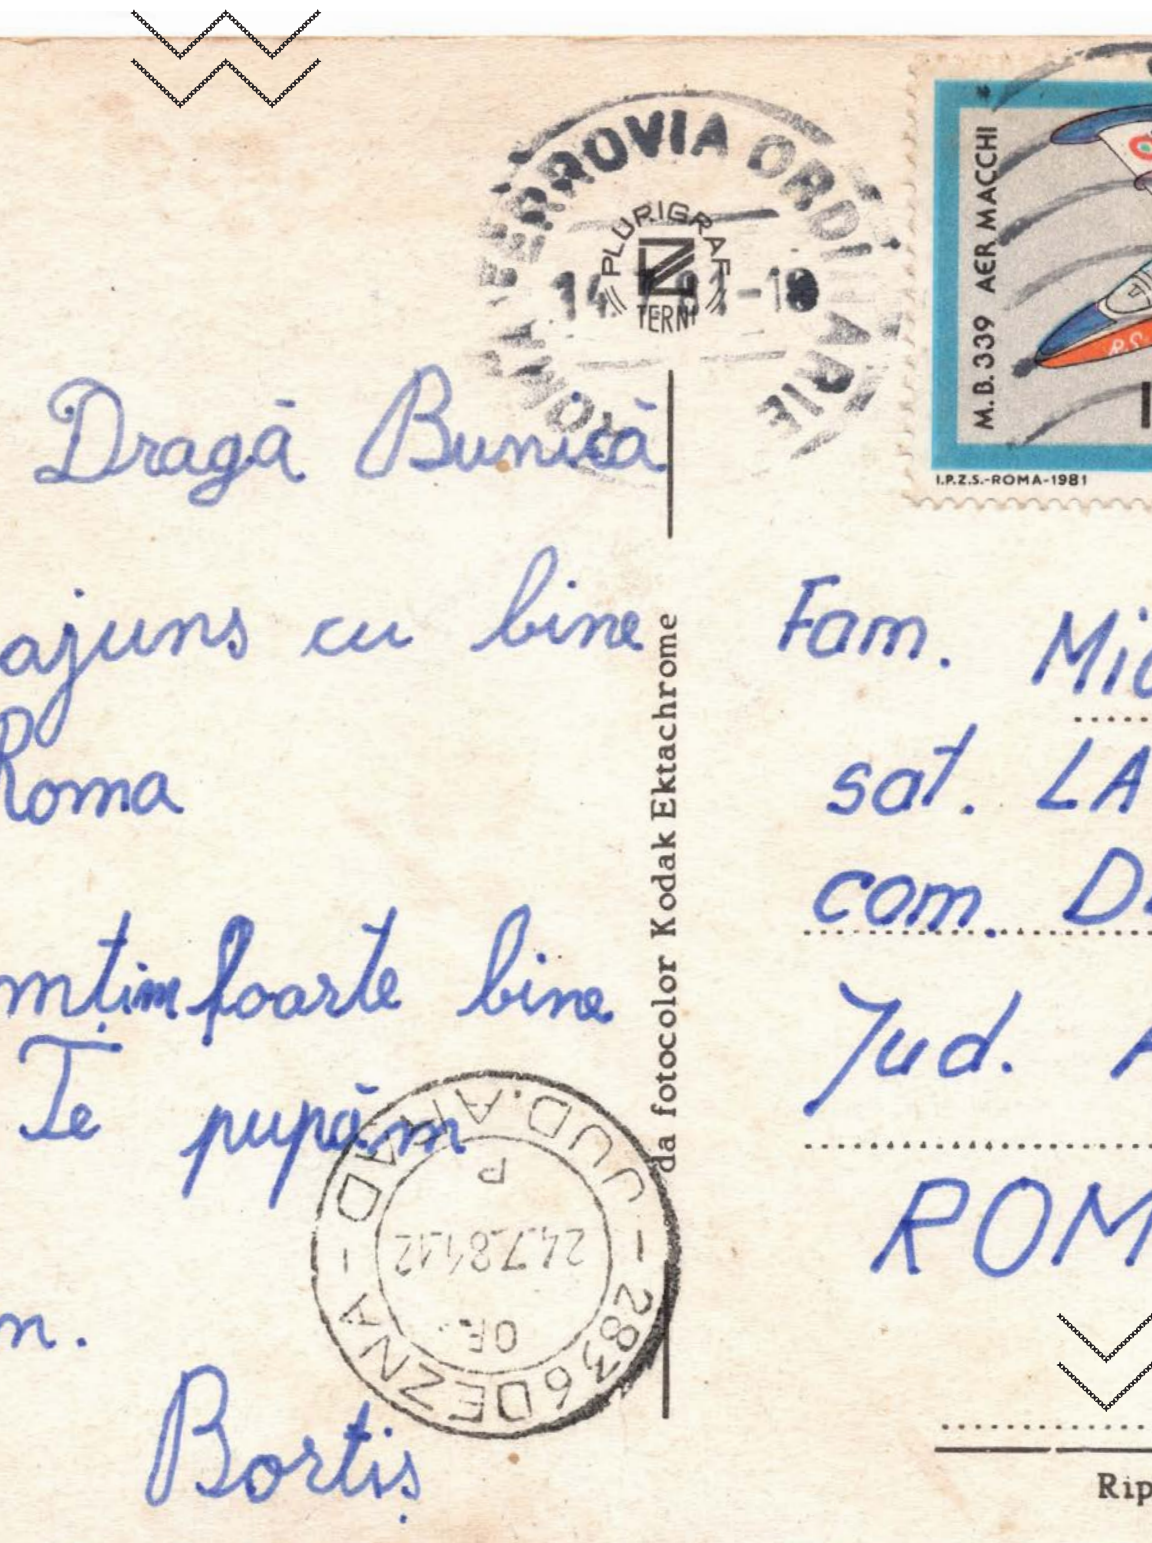 FERROVIA ORDINARIE
PLURIGRAF
TERNI
M.B. 339 AER MACCHI
I.P.Z.S.-ROMA-1981
Dragă Bunică
ajuns cu bine
Roma
mțim foarte bine
Te pupăm
n.
Bortiș
da fotocolor Kodak Ektachrome
JUD. ARAD
P
24.7.81.12
OF.
2836 DEZNA
Fam. Mi
sat. LA
com. D
Jud. A
ROM
Rip